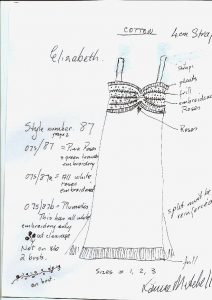 COTTON
4cm Strap
Elizabeth.
straps
pleats
frill
embroidered
Roses
Roses
Style number 87
075/87 = Pink Roses
+ green leaves
embroidery
075/87a = All white
roses
embroidered
075/87b =
This has all white
embroidery only
Not on the
2 bust.
on bust
split must be
reinforced
frill
SIZES = 1, 2, 3